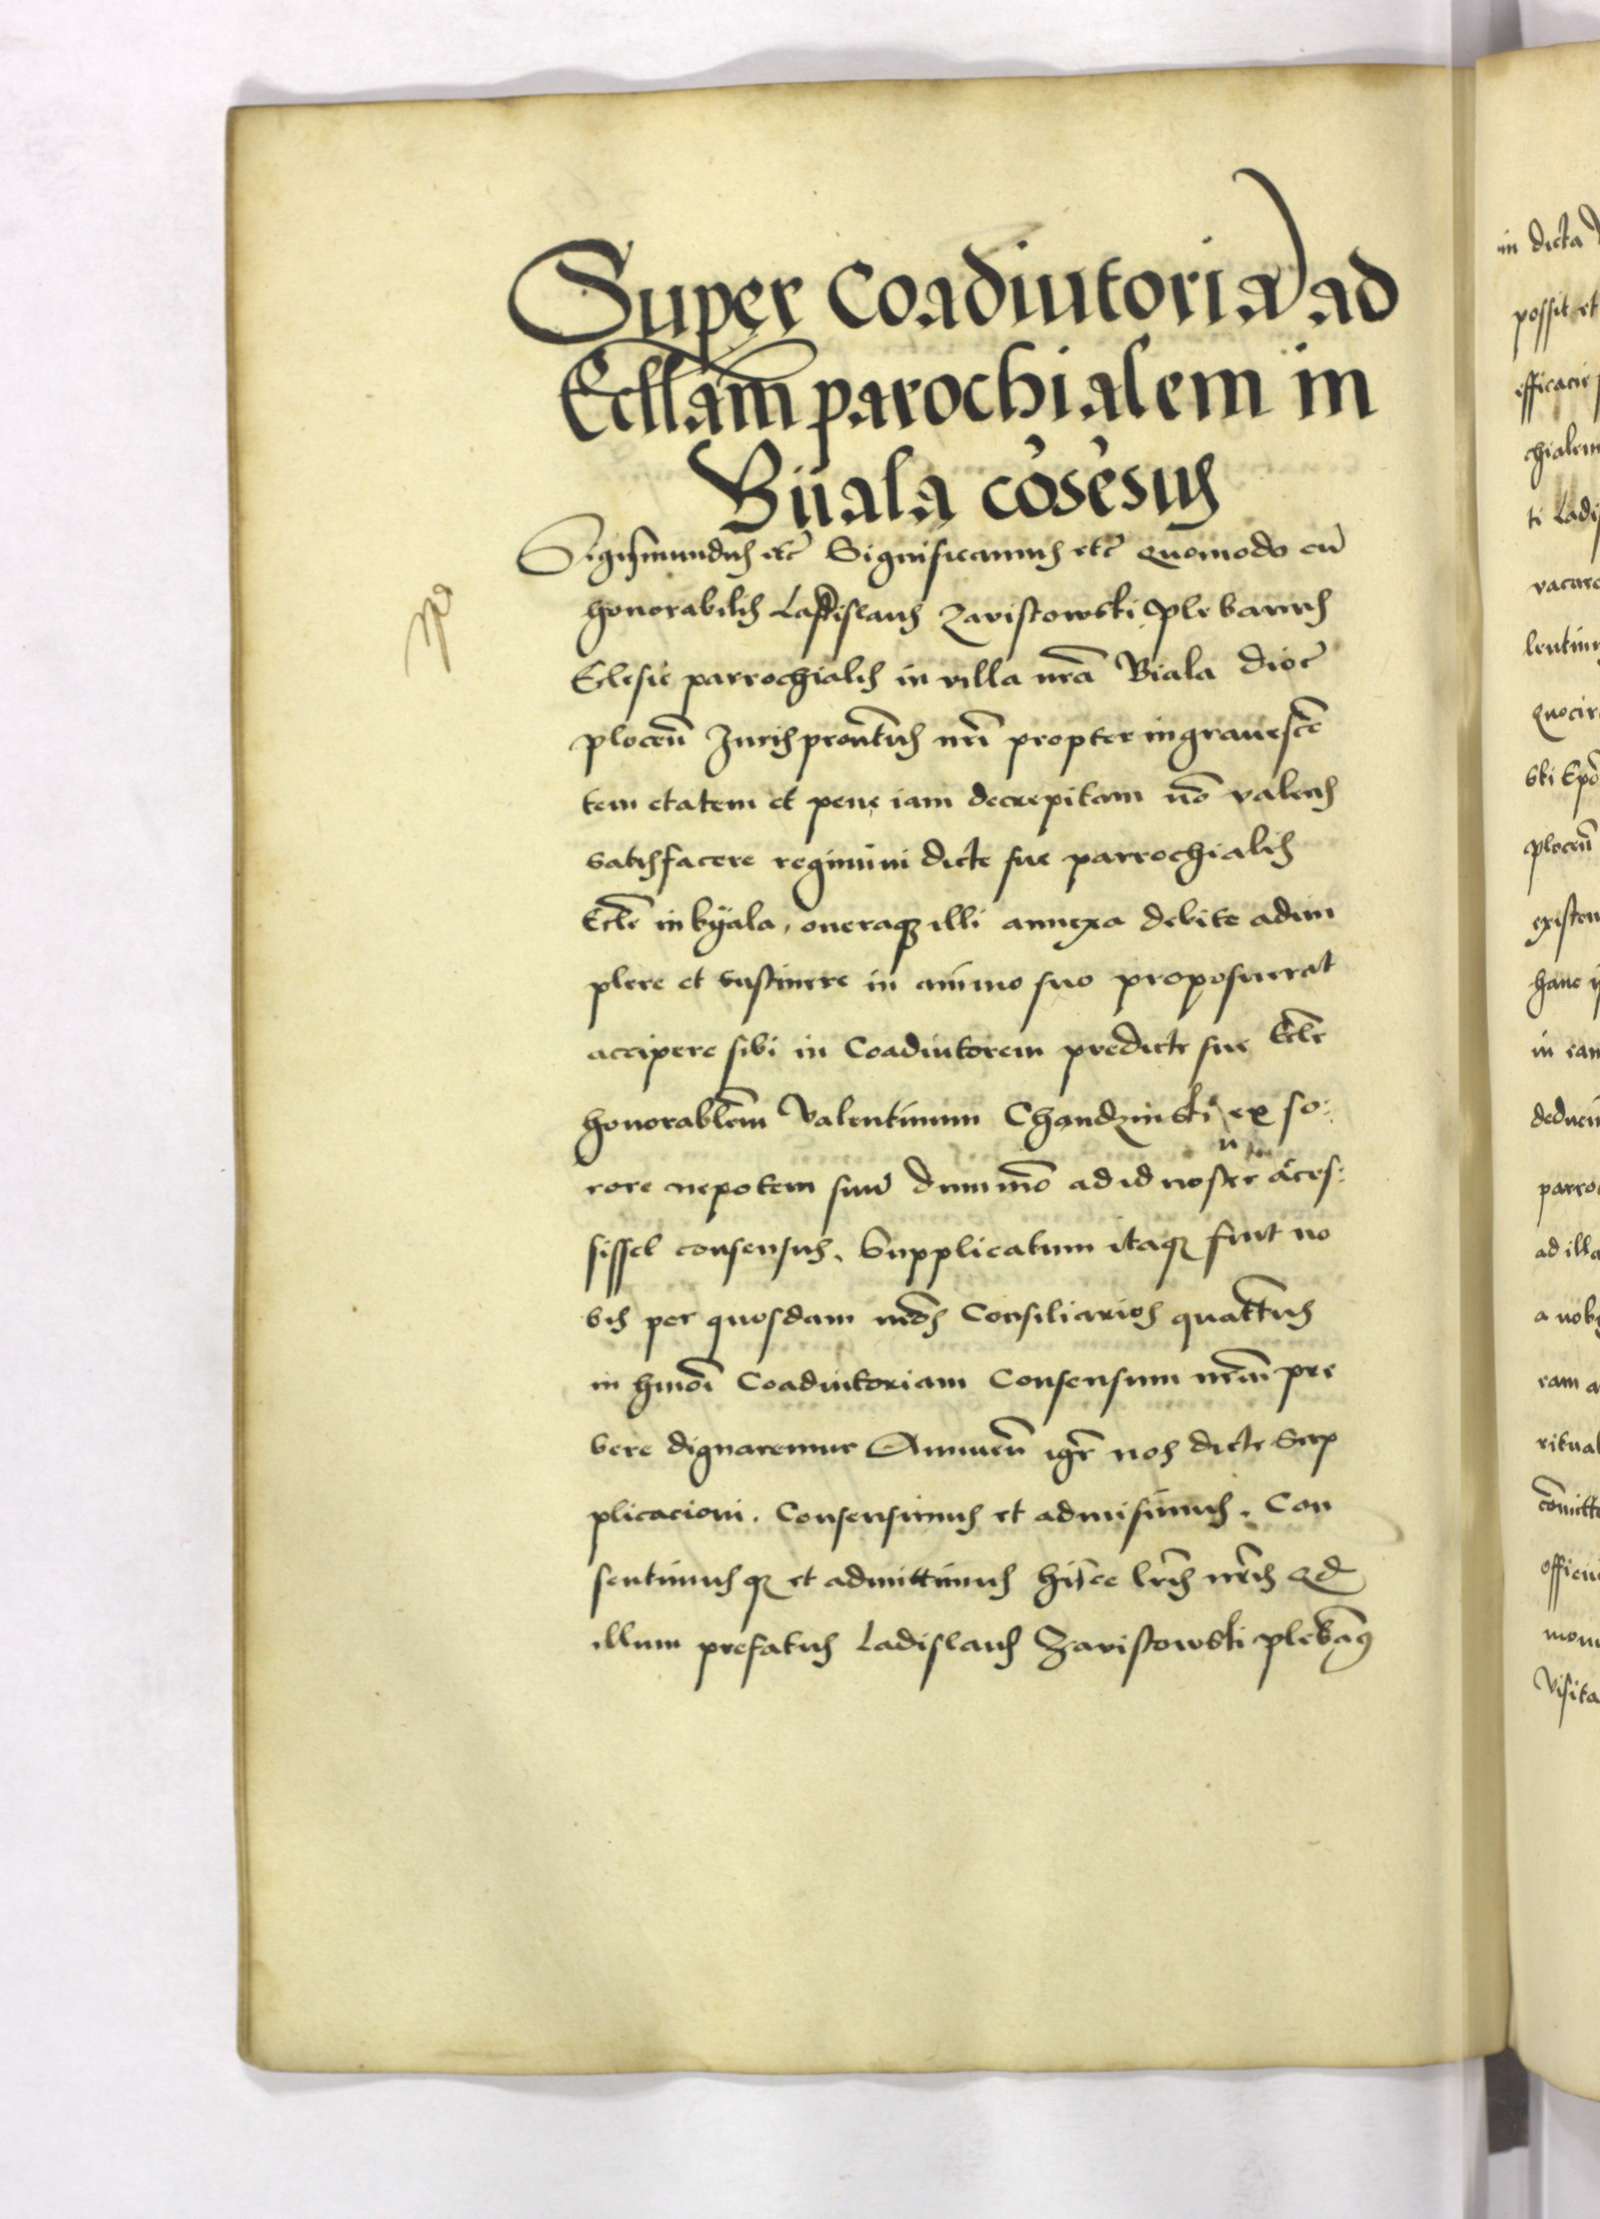 Super Coadiutoria ad
Ecllam parochialem in
Bijala cosesus
Sigismundus etc Significamus etc Quomodo cu
honorabilis Ladislaus Zaristowski plebanus
Eclesie parrochialis in villa nra Biala dioc
plocen Juris prontus nri propter ingravesce
tem etatem et pene iam decrepitam no valens
satisfacere regimini dicte sue parrochialis
Ecle in byala, oneraq illi annexa debite adim
plere et sustinere in animo suo proposuerat
accipere sibi in Coadiutorem predicte sue Ecle
honorablem Valentinum Chandzinski ex so:
rore nepotem suu dummo ad id noster acces:
sisset consensus. Supplicatum itaq fuit no
bis per quosdam nros Consiliarios quattus
in hmoi Coadiutoriam Consensum nrum pre
bere dignaremur Annuen igr nos dicte Sup
plicacioni. Consensimus et admisimus. Con
sentimus q et admittimus hisce lris nris Qd
illum prefatus Ladislaus Zaristowski pleban9
in dicta
possit et
chialem
ti Ladis
lentinu
ski Epo
plocen
existen
in eam
parro
ad illa
a nobis
eam a
ritual
comitt
visita